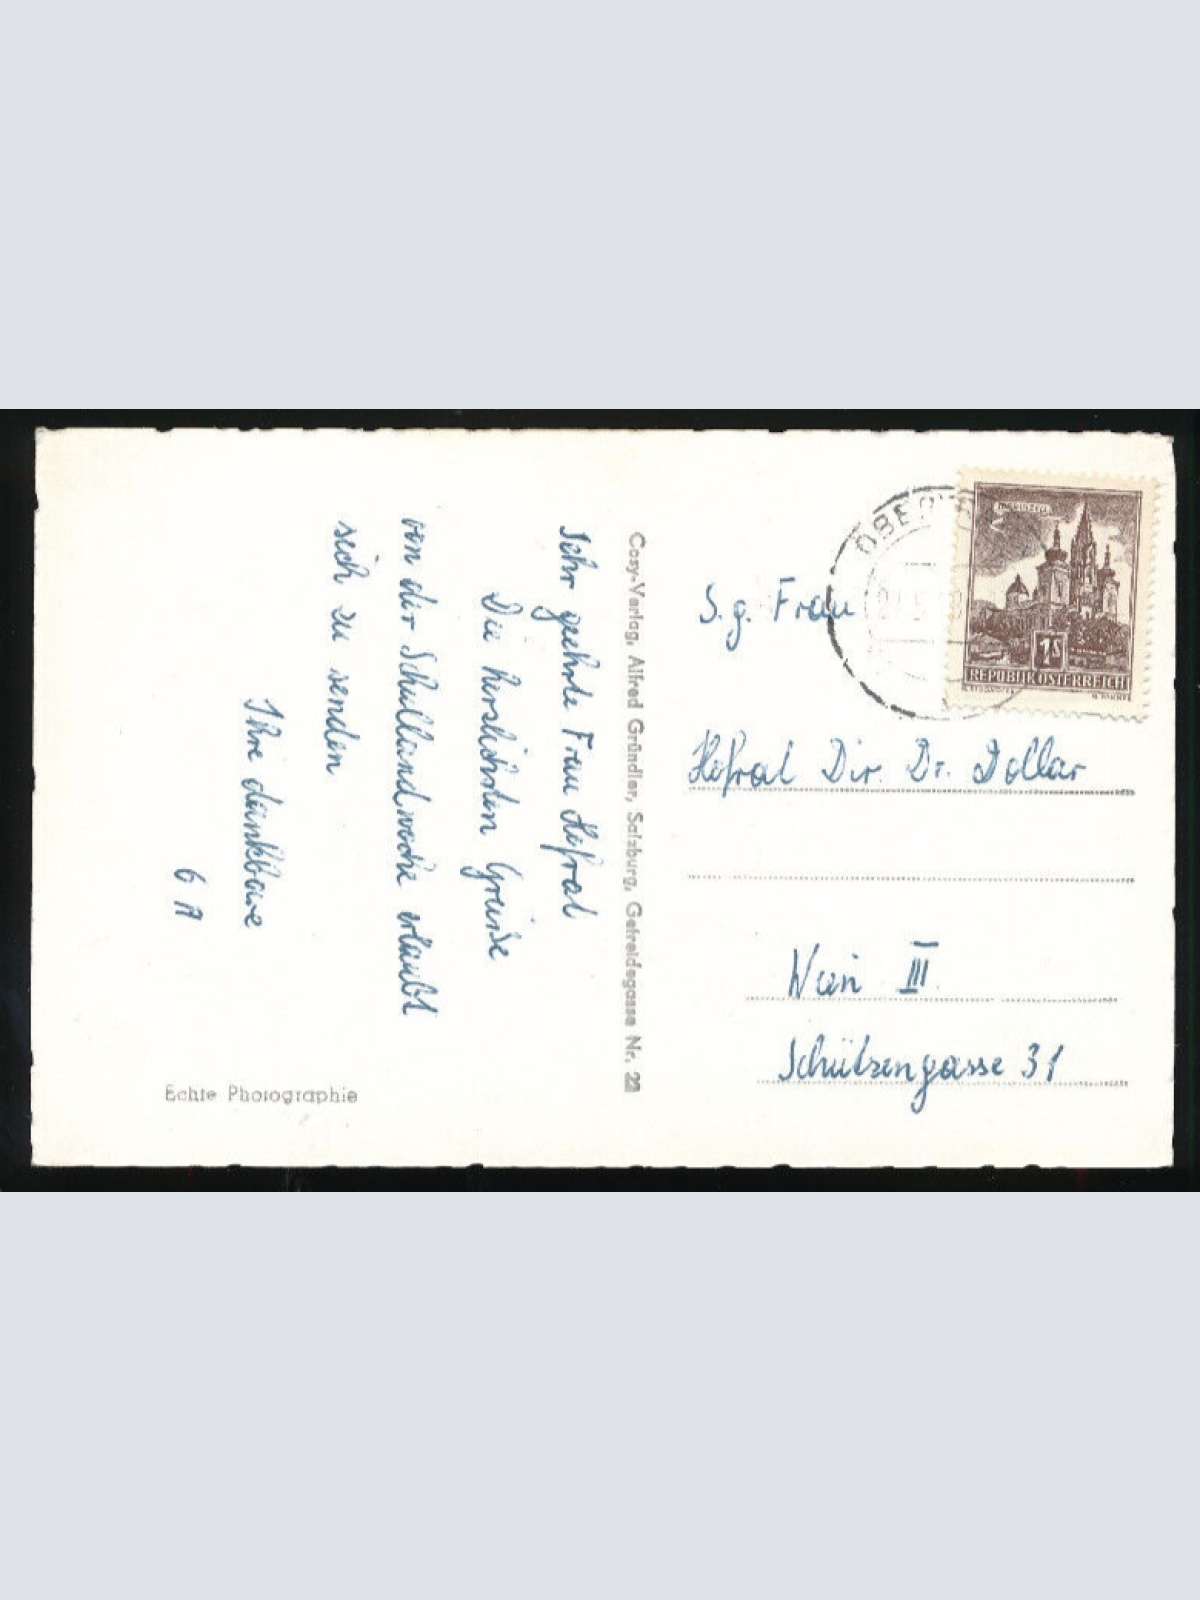 Sehr geehrte Frau Hofrat
Die herzlichsten Grüsse
von der Schullandwoche erlaubt
sich zu senden
Ihre dankbare
6 A
Echte Photographie
Cosy-Verlag, Alfred Gründler, Salzburg, Getreidegasse Nr. 22
MARIAZELL
1S
REPUBLIK ÖSTERREICH
S. g. Frau
Hofrat Dir. Dr. Dollar
Wien III.
Schützengasse 31